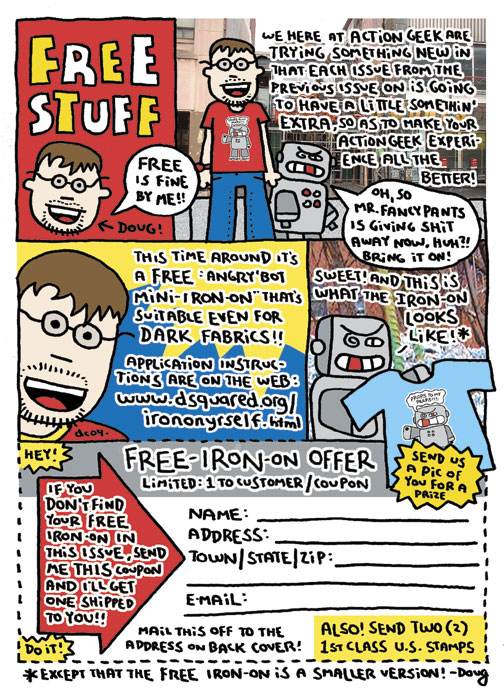 FREE
STUFF
WE HERE AT ACTION GEEK ARE
TRYING SOMETHING NEW IN
THAT EACH ISSUE FROM THE
PREVIOUS ISSUE ON IS GOING
TO HAVE A LITTLE SOMETHIN'
EXTRA, SO AS TO MAKE YOUR
ACTION GEEK EXPERI-
ENCE ALL THE
BETTER!
FREE
IS FINE
BY ME!!
← DOUG!
OH, SO
MR. FANCYPANTS
IS GIVING SHIT
AWAY NOW, HUH?!
BRING IT ON!
THIS TIME AROUND IT'S
A FREE "ANGRY BOT
MINI-IRON-ON" THAT'S
SUITABLE EVEN FOR
DARK FABRICS!!
APPLICATION INSTRUC-
TIONS ARE ON THE WEB:
www.dsquared.org/
irononyrself.html
dcoy.
SWEET! AND THIS IS
WHAT THE IRON-ON
LOOKS
LIKE!*
PROPS TO MY
PEEPS!!!
SEND US
A PIC OF
YOU FOR A
PRIZE
HEY!
IF YOU
DON'T FIND
YOUR FREE
IRON-ON IN
THIS ISSUE, SEND
ME THIS COUPON
AND I'LL GET
ONE SHIPPED
TO YOU!!
DO IT!
FREE-IRON-ON OFFER
LIMITED: 1 TO CUSTOMER/COUPON
NAME:
ADDRESS:
TOWN/STATE/ZIP:
E-MAIL:
MAIL THIS OFF TO THE
ADDRESS ON BACK COVER!
ALSO! SEND TWO (2)
1ST CLASS U.S. STAMPS
*EXCEPT THAT THE FREE IRON-ON IS A SMALLER VERSION! -Doug